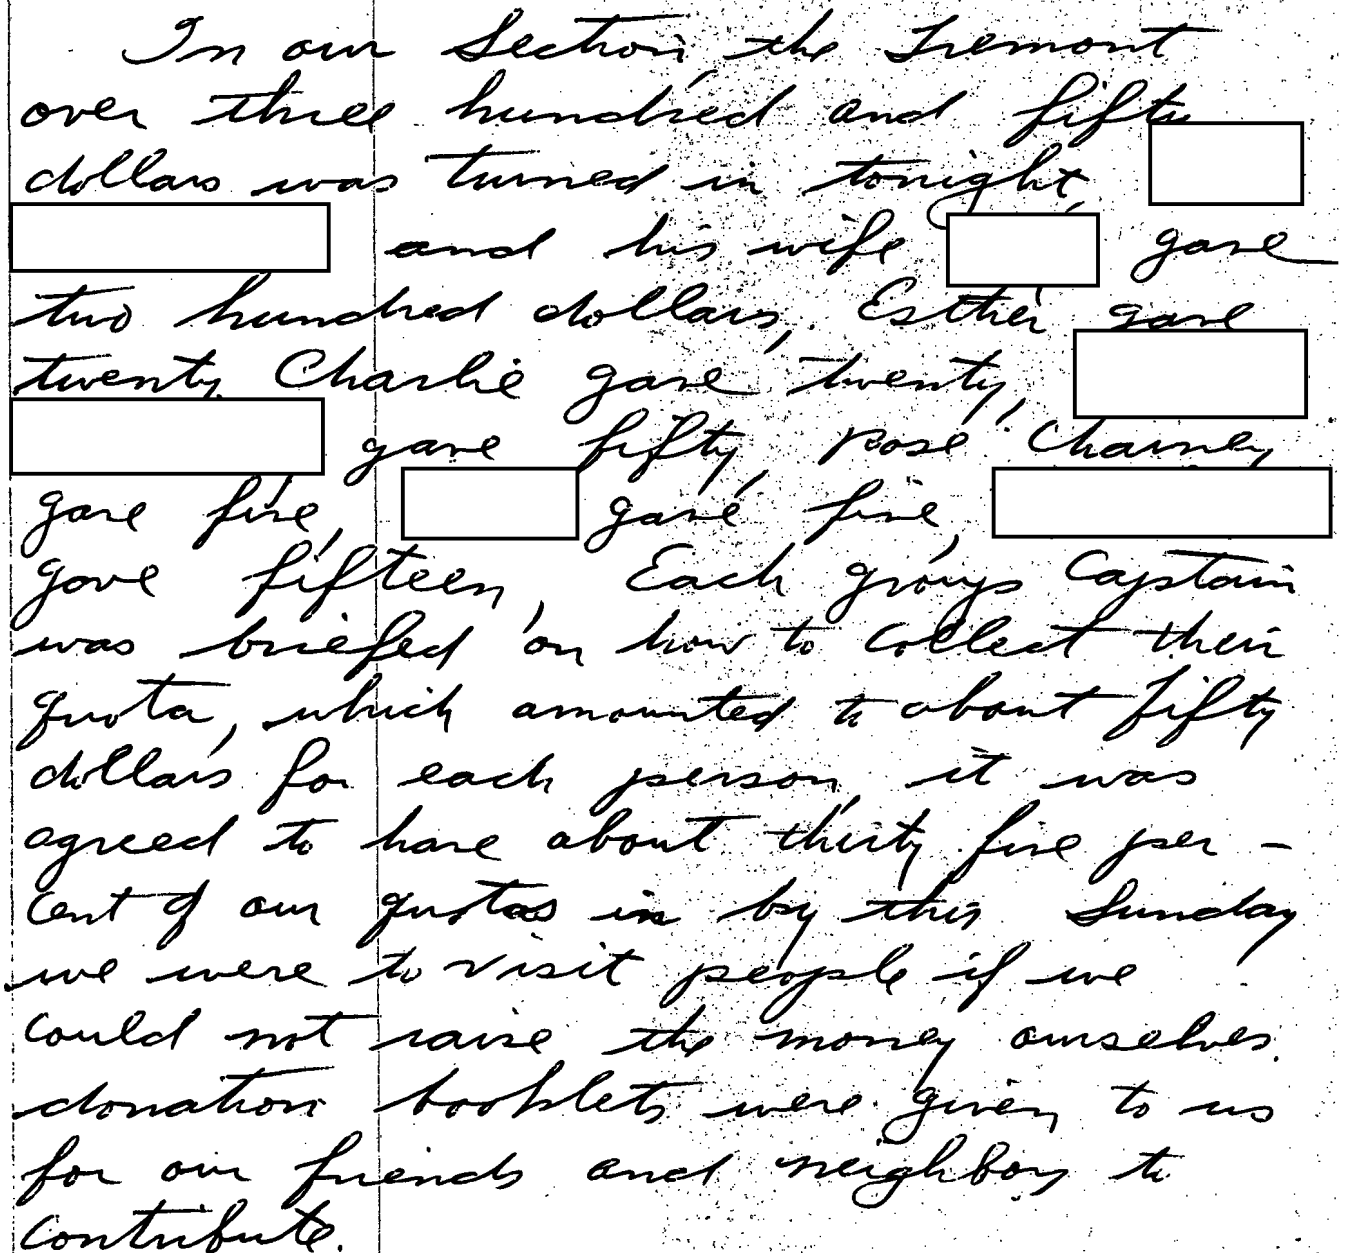 In our Section, the Tremont
over three hundred and fifty
dollars was turned in tonight,
and his wife gave
two hundred dollars, Esther gave
twenty, Charlie gave twenty,
gave fifty, Rose Charney
gave five, gave five,
gave fifteen, Each groups Captain
was briefed on how to collect their
quota, which amounted to about fifty
dollars for each person, it was
agreed to have about thirty five per-
cent of our quotas in by this Sunday
we were to visit people if we
could not raise the money ourselves.
donation booklets were given to us
for our friends and neighbors to
contribute.